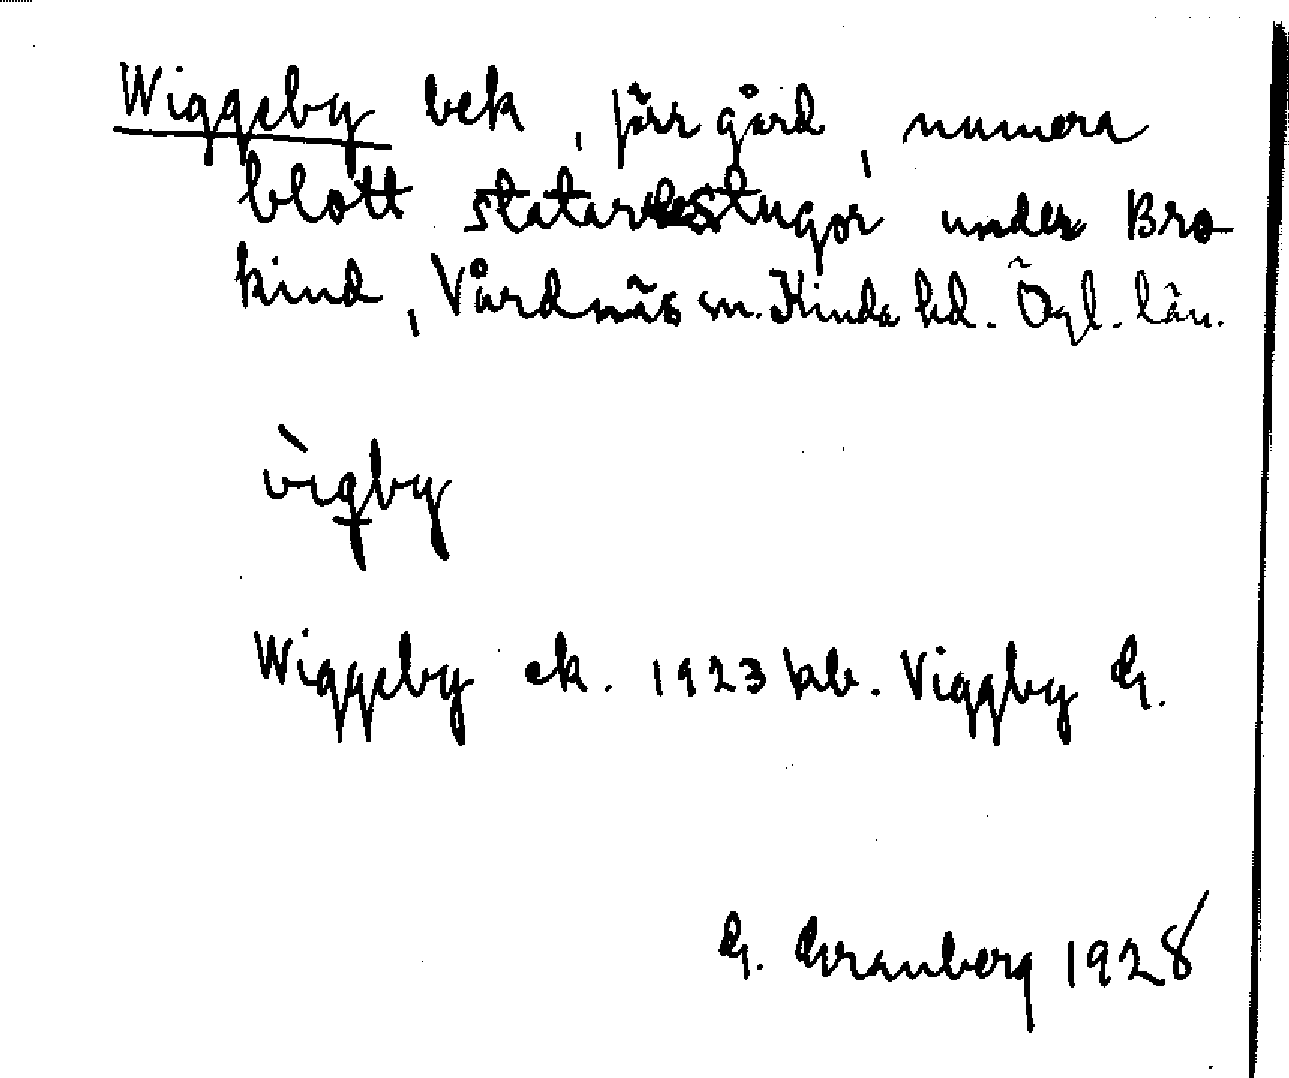 Wiggeby bek, förr gård, numera
blott statarestugor under Bro-
kind, Vårdnäs sn. Kinda hd. Ögl. län.
vìgby
Wiggeby ek. 1923 kb. Viggby G.
G. Granberg 1928